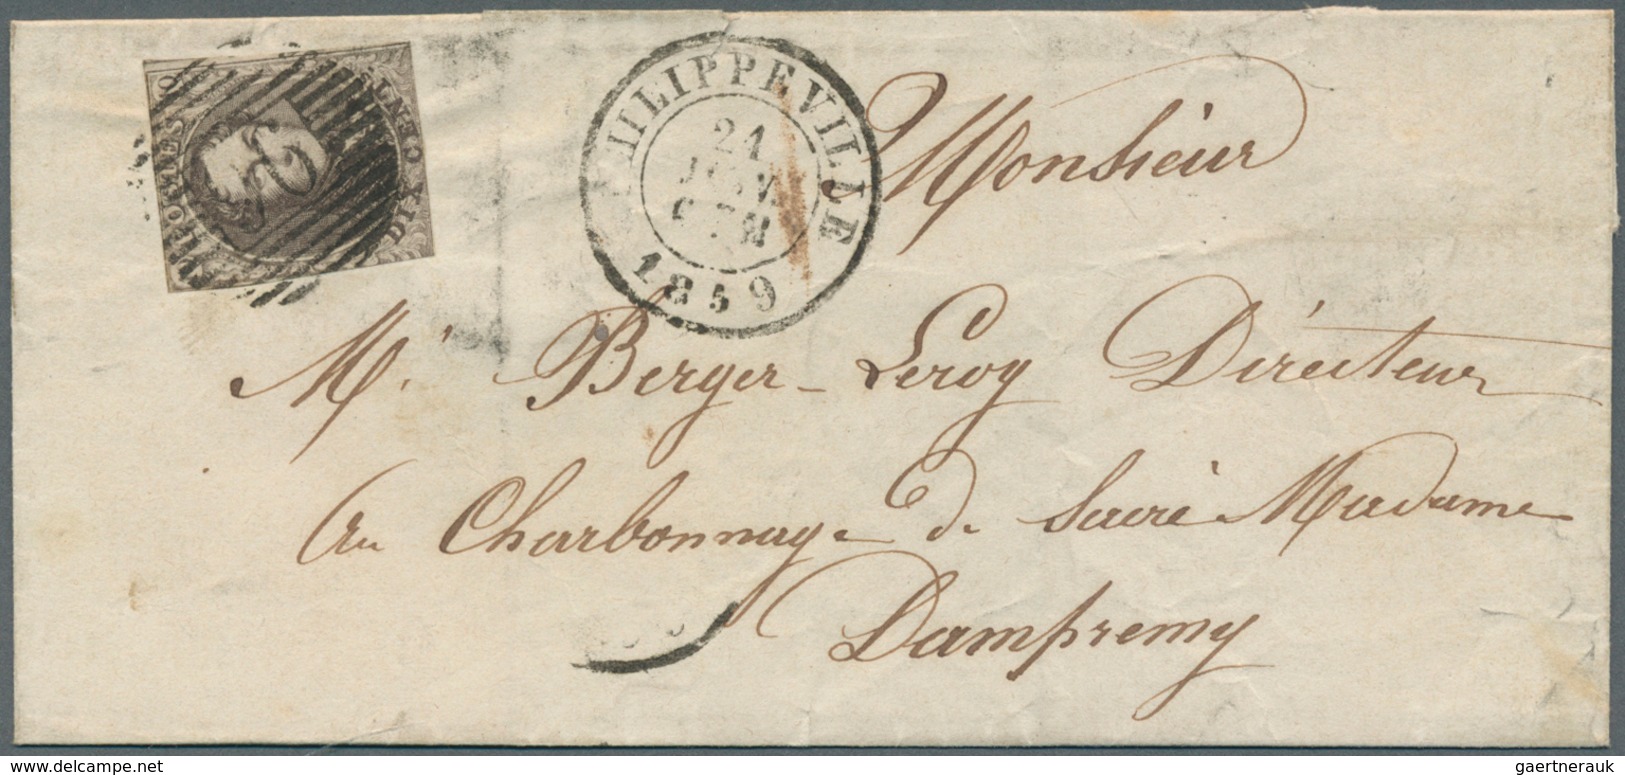 POSTES 10
DIX CENTIMES
PHILIPPEVILLE
21
1859
Monsieur
Mr Berger-Leroy Directeur
Au Charbonnage de Sacré Madame
Dampremy
delcampe.net
gaertnerauk